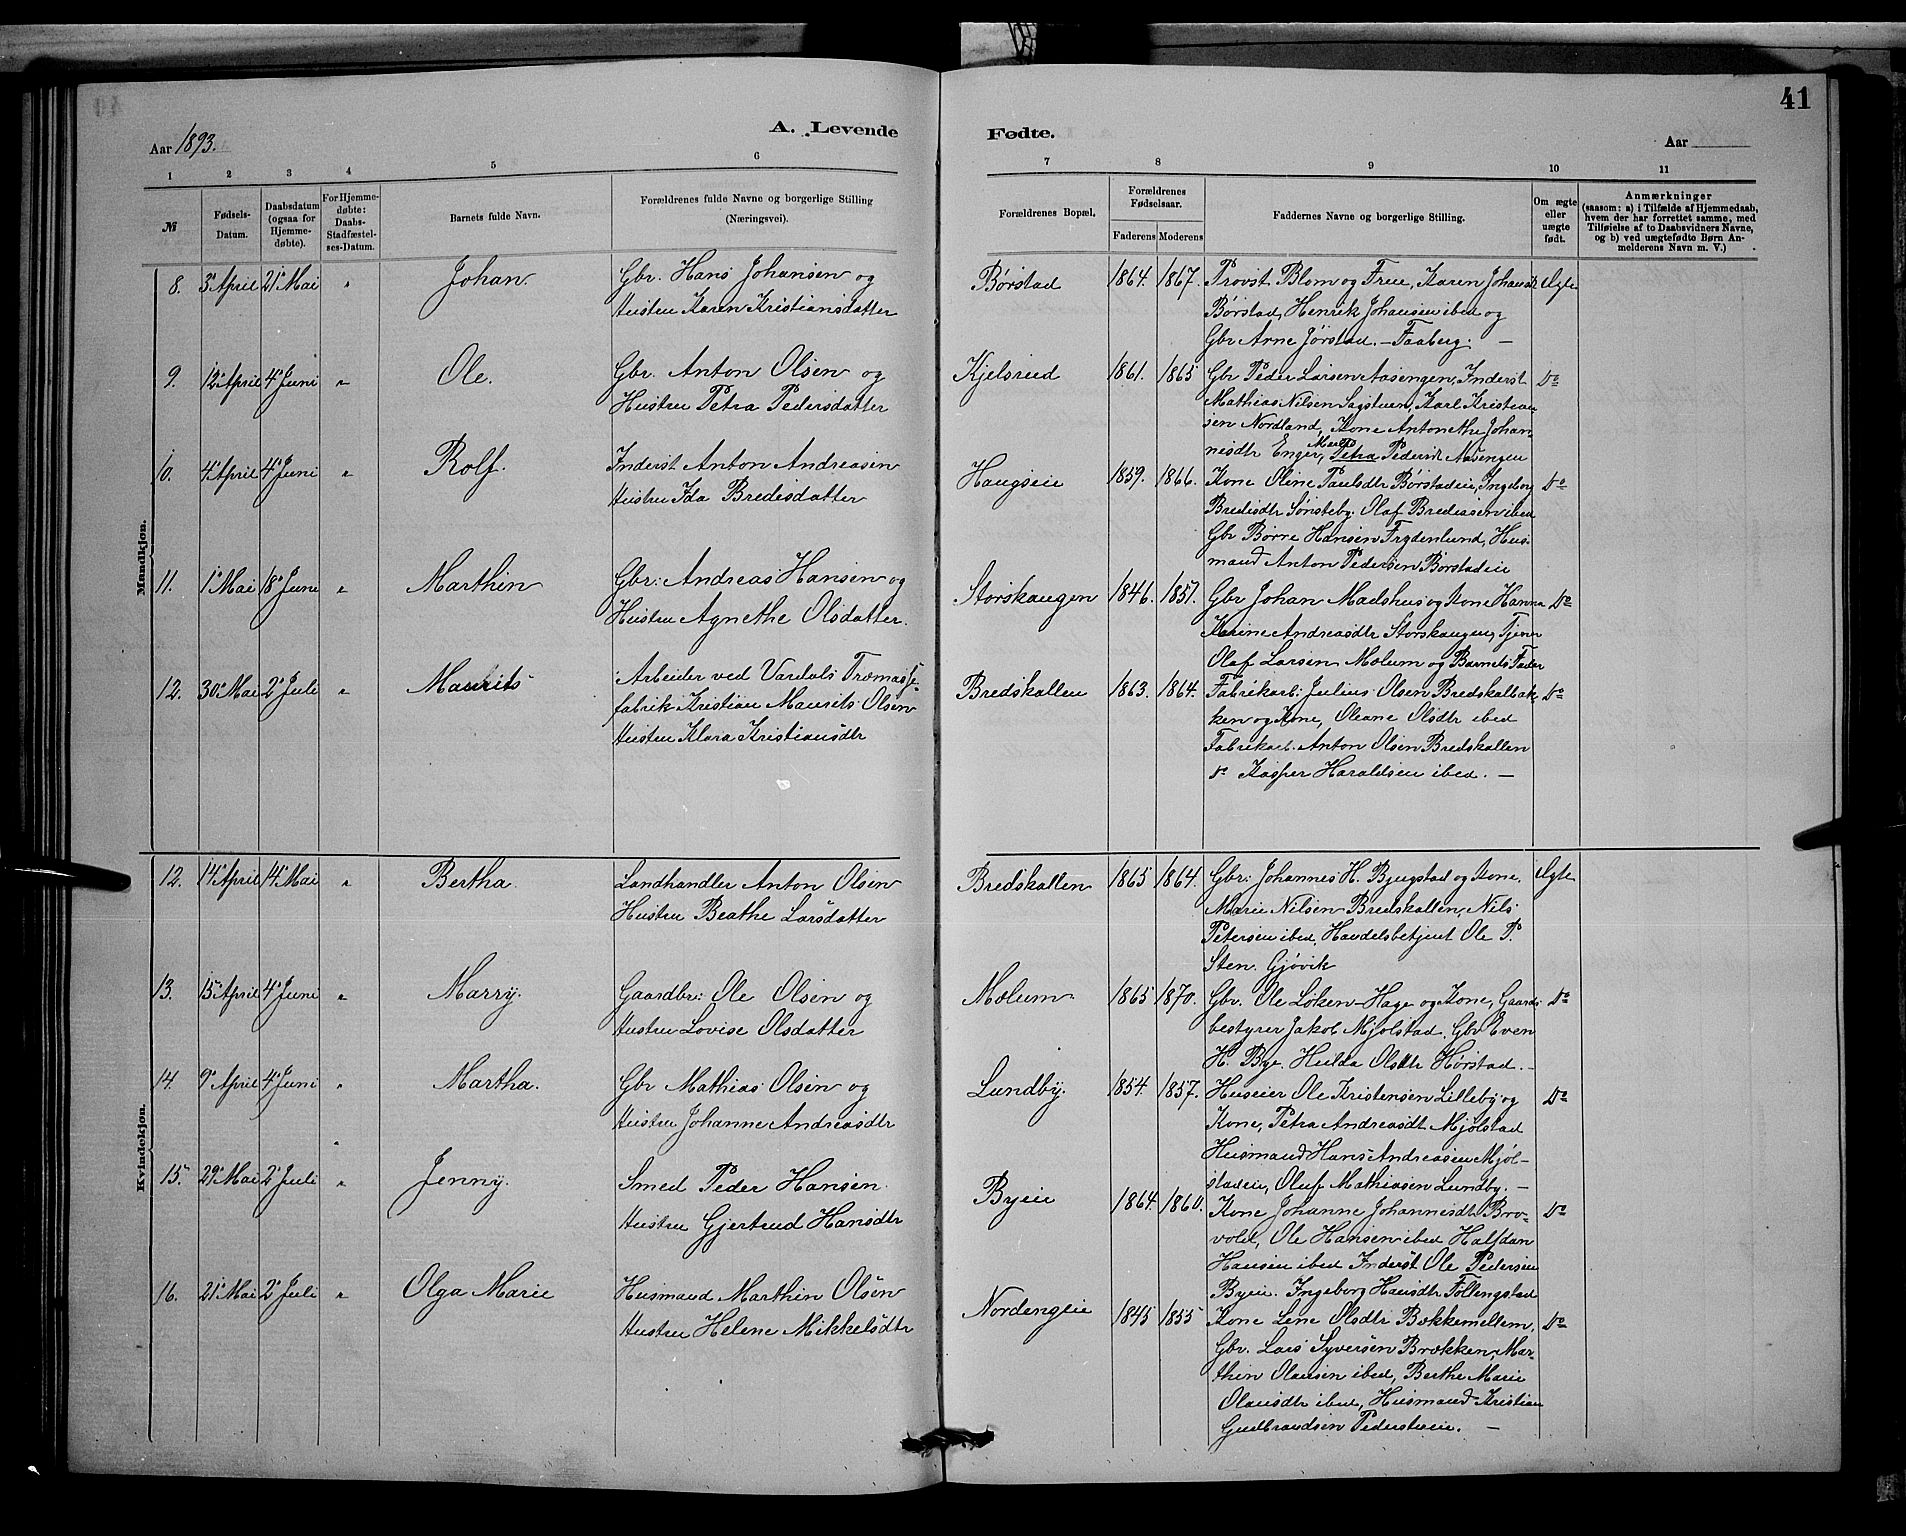 41
A. Levende
Fødte.
Aar 1893.
Aar
1 2 3 4 5 6 7 8 9 10 11
№
Fødsels-
Datum.
Daabsdatum
(ogsaa for
Hjemme-
døbte).
For Hjemme-
døbte:
Daabs-
Stadfæstel-
ses-Datum.
Barnets fulde Navn.
Forældrenes fulde Navne og borgerlige Stilling
(Næringsvei).
Forældrenes Bopæl.
Forældrenes
Fødselsaar.
Faderens
Moderens
Faddernes Navne og borgerlige Stilling.
Om ægte
eller
uægte
født.
Anmærkninger
(saasom: a) i Tilfælde af Hjemmedaab,
hvem der har forrettet samme, med
Tilføielse af to Daabsvidners Navne,
og b) ved uægtefødte Børn An-
melderens Navn m. V.)
Mandkjøn.
8. 3 April 21 Mai " Johan. Gbr. Hans Johansen og
Hustru Karen Kristiansdatter
Børstad 1864. 1867. Provst Blom og Frue, Karen Johansdt Ægte
Børstad, Henrik Johansen ibed og
Gbr Arne Jørstad. – Faaberg. –
9. 12 April 4 Juni " Ole. Gbr. Anton Olsen og
Hustru Petra Pedersdatter
Kjelsrud 1861. 1865 Gbr Peder Larsen Aasengen, Inderst Do
Mathias Nilsen Sagstuen, Karl Kristian-
sen Nordland, Kone Antonethe Johan-
nisdtr Enger, Marthe Petra Pedersdt Aasengen
10. 4 April 4 Juni " Rolf. Inderst Anton Andreasen
Hustru Ida Bredesdatter
Haugseie 1859. 1866. Kone Oline Paulsdtr Børstadeie, Ingeborg Do
Bredisdtr Sønsteby. Olaf Bredesen ibed
Gbr Børre Hansen Frydenlund, Hus-
mand Anton Pedersen Børstadeie
11. 1 Mai 18 Juni " Marthin Gbr: Andreas Hansen og
Hustru Agnethe Olsdatter.
Storskaugen 1846. 1851. Gbr Johan Madshus og Kone Hanna Do
Karine Andreasdtr Storskaugen, Tjener
Olaf Larsen Mælum og Barnets Fader
12. 30 Mai 2 Juli " Maurits Arbeider ved Vardals Træmasse-
fabrik Kristian Maurits Olsen
Hustru Klara Kristiansdtr
Bredskallen 1863. 1864. Fabrikarb: Julius Olsen Bredskalbak- Do
ken og Kone, Oleane Olsdtr ibed
Fabrikarb. Anton Olsen Bredskallen
do Kasper Haraldsen ibed. –
Kvindekjøn.
12. 14 April 14 Mai " Bertha. Landhandler Anton Olsen
Hustru Beathe Larsdatter
Bredskallen 1865 1864. Gbr: Johannes H. Bjugstad og Kone. Ægte
Marie Nilsen Bredskallen, Nils
Petersen ibed, Handelsbetjent Ole P.
Sten. Gjøvik
13. 15 April 4 Juni " Marry. Gaardbr: Ole Olsen og
Hustru Lovise Olsdatter
Mælum 1865 1870. Gbr. Ole Løken-Hage og Kone, Gaards- Do
bestyrer Jakob Mjølstad. Gbr Even
H. Bye. Hulda Olsdtr Hørstad. –
14. 9 April 4 Juni " Martha. Gbr Mathias Olsen og
Hustru Johanne Andreasdtr
Lundby. 1854. 1857. Huseier Ole Kristensen Lilleby og Do
Kone, Petra Andreasdt Mjølstad
Husmand Hans Andreasen Mjøl-
stadeie, Oluf Mathiasen Lundby. –
15. 29 Mai 2 Juli " Jenny. Smed Peder Hansen.
Hustru Gjertrud Hansdtr
Byeie 1864. 1860. Kone Johanne Johannesdtr Bro- Do
vold, Ole Hansen ibed Halfdan
Hansen ibed Inderst Ole Pedersen
Byeie. Ingeborg Hansdtr Follengstad
16. 21 Mai 2 Juli " Olga Marie Husmand Marthin Olsen
Hustru Helene Mikkelsdtr
Nordengeie 1845 1855 Kone Lene Olsdtr Bækkemellem, Do
Gbr. Lars Syversen Brækken, Mar-
thin Olausen ibed, Berthe Marie
Olausdtr ibed, Husmand Kristian
Gudbrandsen Pederstueie. –